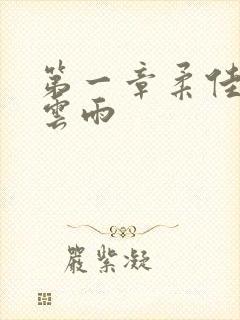 第一章柔佳
雲雨
嚴紫凝